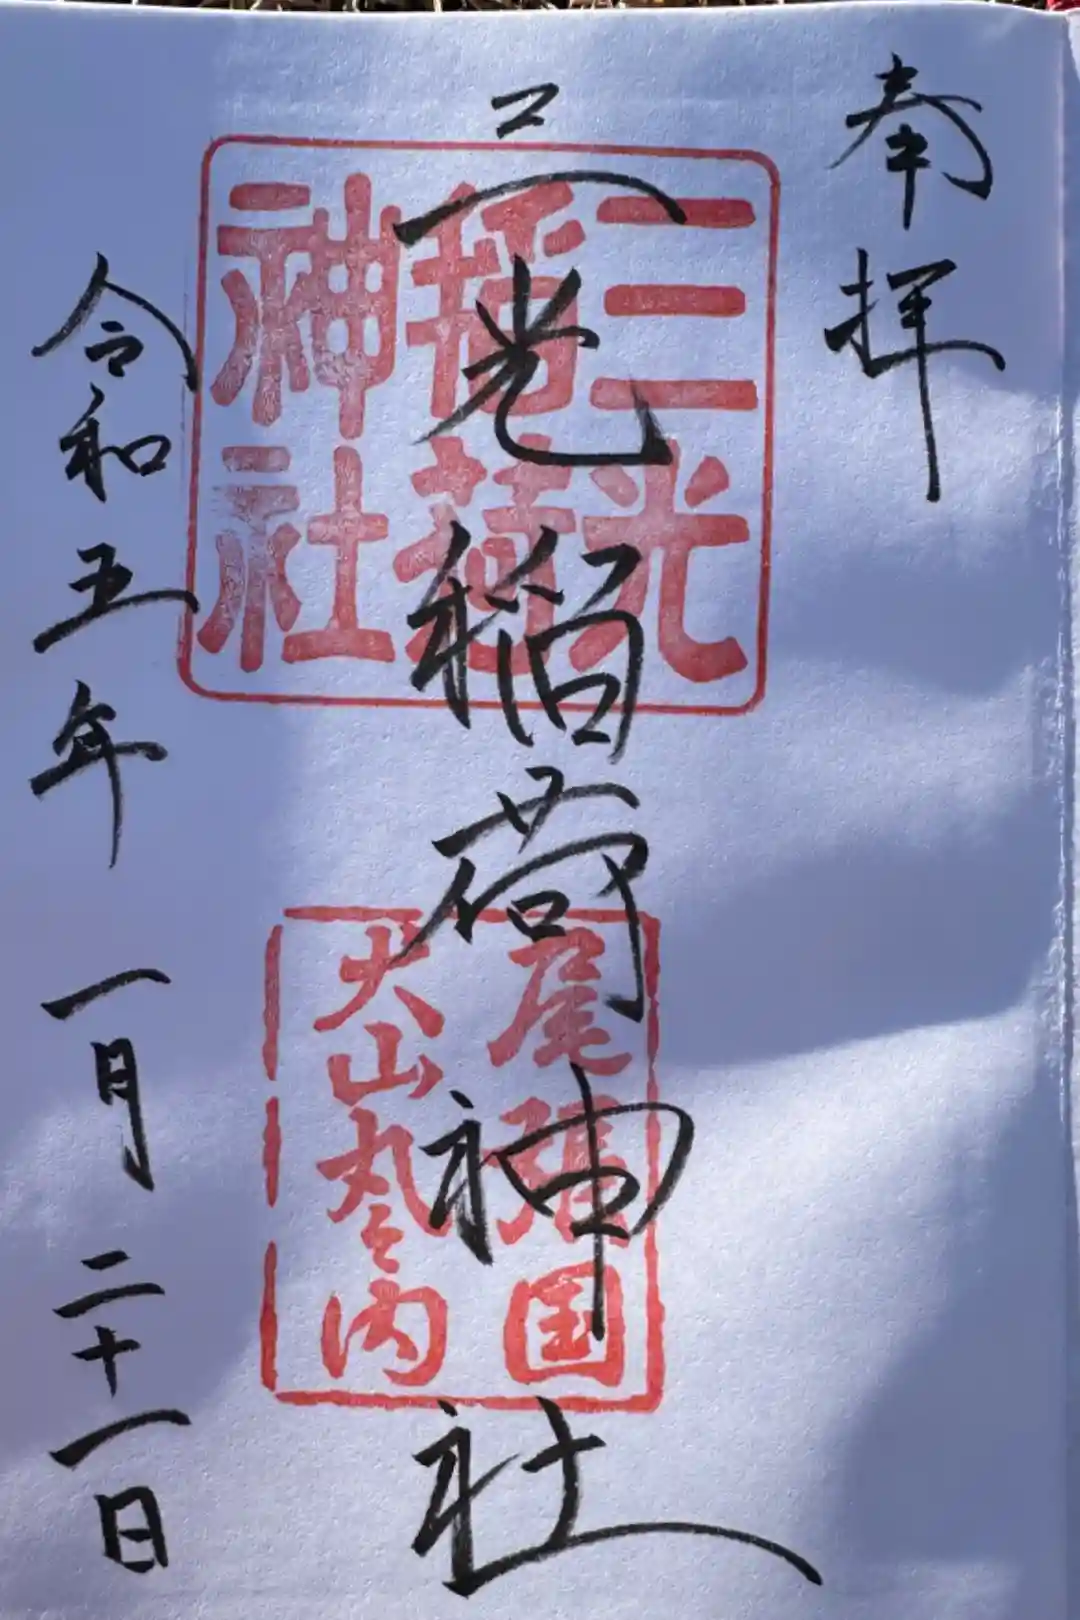 奉拝
三光稲荷神社
三光
稲荷
神社
尾張国
犬山丸之内
令和五年一月二十一日